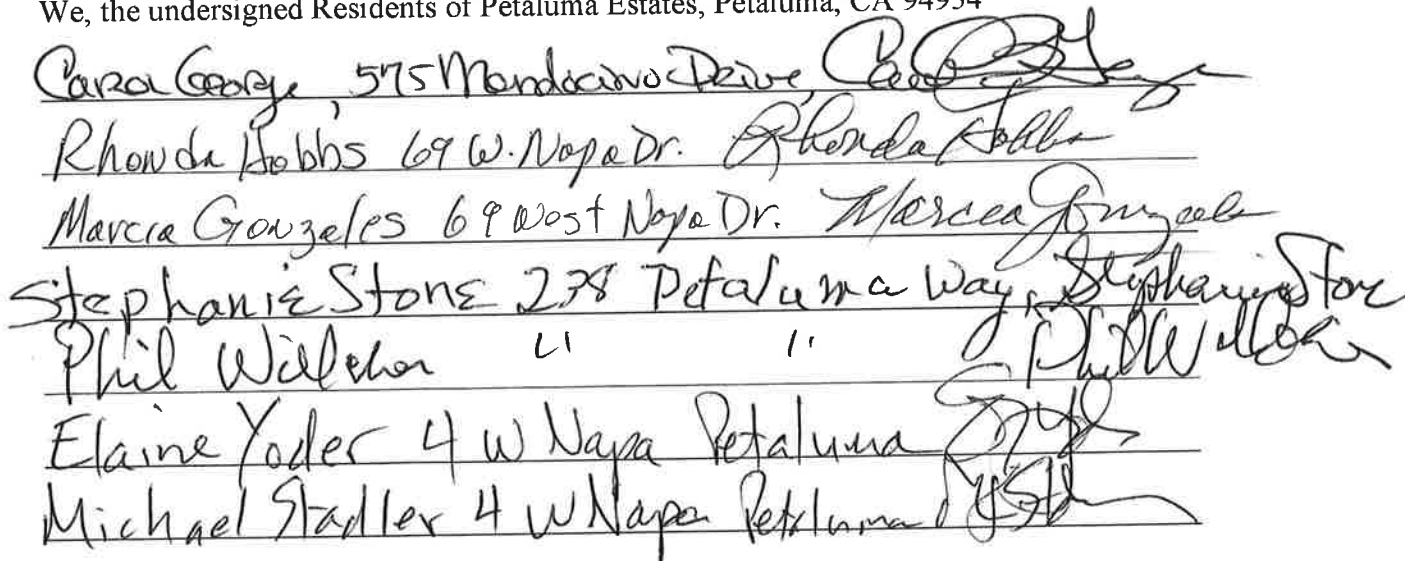 We, the undersigned Residents of Petaluma Estates, Petaluma, CA 94954
Carol George, 575 Mendocino Drive, Carol George
Rhonda Hobbs 69 W. Napa Dr. Rhonda Hobbs
Marcia Gonzales 69 West Napa Dr. Marcia Gonzales
Stephanie Stone 238 Petaluma Way, Stephanie Stone
Phil " " Phil
Elaine Yoder 4 W Napa Petaluma
Michael Stadler 4 W Napa Petaluma